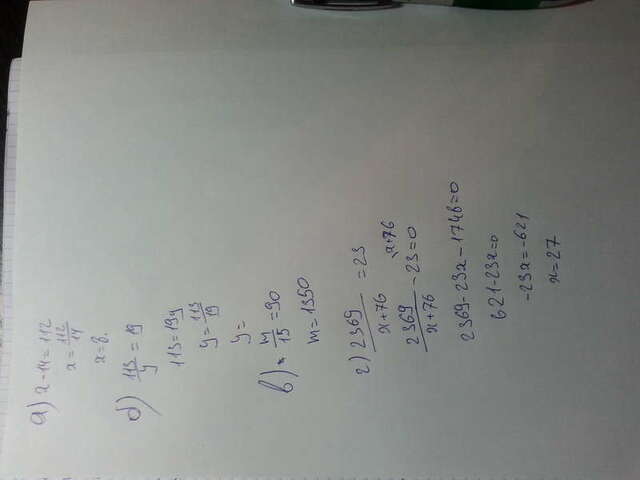 а) x·14=112
x=112/14
x=8.
б) 113/y=19
113=19y
y=113/19
y=
в) m/15=90
m=1350
г) 2369/x+76=23
2369/x+76-23=0 \x+76
2369-23x-1748=0
621-23x=0
-23x=-621
x=27